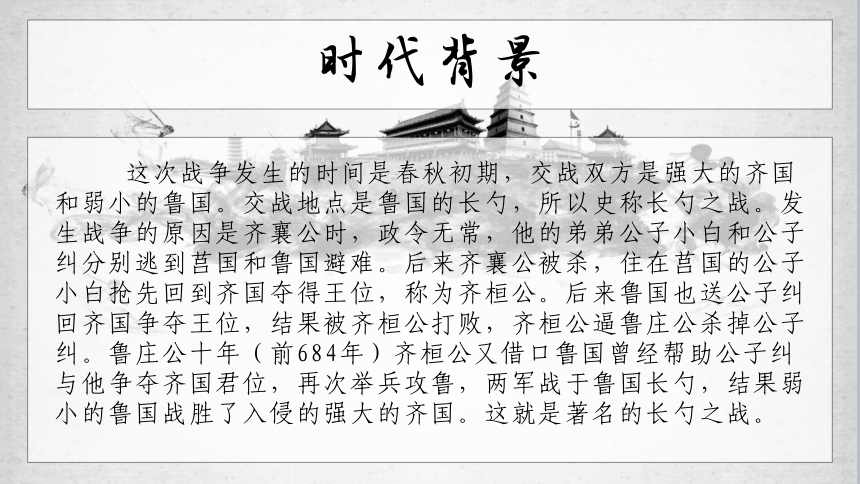 时代背景
这次战争发生的时间是春秋初期，交战双方是强大的齐国
和弱小的鲁国。交战地点是鲁国的长勺，所以史称长勺之战。发
生战争的原因是齐襄公时，政令无常，他的弟弟公子小白和公子
纠分别逃到莒国和鲁国避难。后来齐襄公被杀，住在莒国的公子
小白抢先回到齐国夺得王位，称为齐桓公。后来鲁国也送公子纠
回齐国争夺王位，结果被齐桓公打败，齐桓公逼鲁庄公杀掉公子
纠。鲁庄公十年（前684年）齐桓公又借口鲁国曾经帮助公子纠
与他争夺齐国君位，再次举兵攻鲁，两军战于鲁国长勺，结果弱
小的鲁国战胜了入侵的强大的齐国。这就是著名的长勺之战。